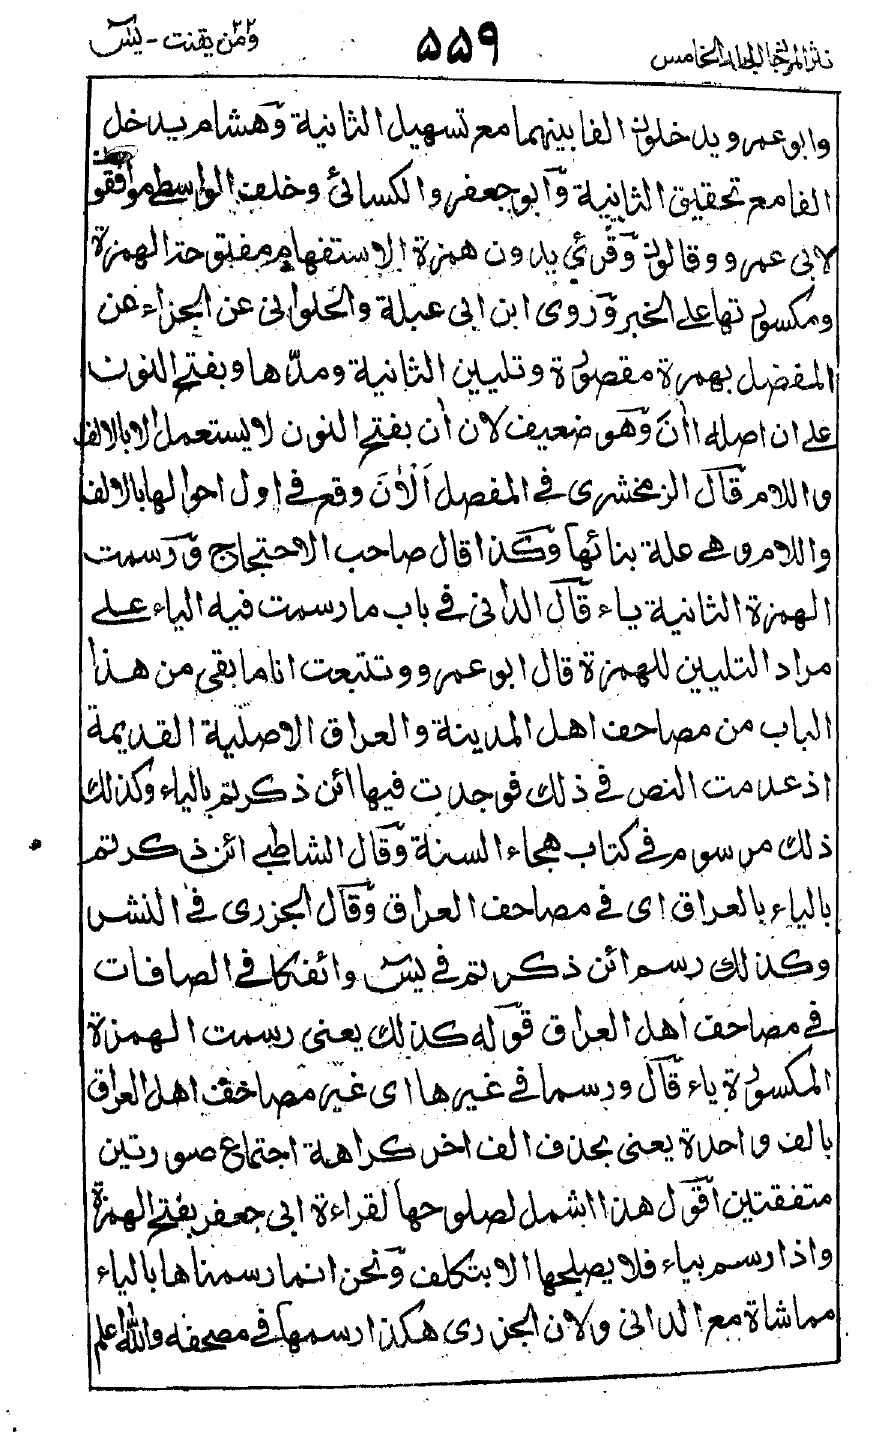 نثر المرجان المجلد الخامس
۵۵۹
ومن يقنت ۲۲ - يٰسٓ
وابو عمرو يدخلون الفا بينهما مع تسهيل الثانية وهشام يدخل
الفا مع تحقيق الثانية وابو جعفر والكسائى وخلف الواسطے موافقون
لابى عمرو وقالون وقرئ بدون همزة الاستفهام مفتوحة الهمزة
ومكسورتها على الخبر وروى ابن ابى عبلة والحلوانى عن الجزاء عن
المفضل بهمزة مقصورة وتليين الثانية ومدّها وبفتح النون
على ان اصله اأنَ وهو ضعيف لان أن بفتح النون لا يستعمل الا بالالف
واللام قال الزمخشرى فى المفصل اَلْاٰنَ وقع فى اول احوالها بالالف
واللام وهے علة بنائها وكذا قال صاحب الاحتجاج ورسمت
الهمزة الثانية ياء قال الدانى فى باب ما رسمت فيه الياء علے
مراد التليين للهمزة قال ابو عمرو وتتبعت انا ما بقى من هذا
الباب من مصاحف اهل المدينة والعراق الاصلية القديمة
اذ عدمت النص فى ذلك فوجدت فيها ائن ذكرتم بالياء وكذلك
ذلك مرسوم فى كتاب هجاء السنة وقال الشاطبے ائن ذكرتم
بالياء بالعراق اى فى مصاحف العراق وقال الجزرى فى النشر
وكذلك رسم ائن ذكرتم فى يٰسٓ وائفكا فى الصافات
فى مصاحف اهل العراق قوله كذلك يعنى رسمت الهمزة
المكسورة ياء قال ورسما فى غيرها اى غير مصاحف اهل العراق
بالف واحدة يعنى بحذف الف اخر كراهة اجتماع صورتين
متفقتين اقول هذا اشمل لصلوحها لقراءة ابى جعفر بفتح الهمزة
واذا رسم بياء فلا يصلحها الا بتكلف ونحن انما رسمناها بالياء
مماشاة مع الدانى ولان الجزرى هكذا رسمها فى مصحفه والله اعلم